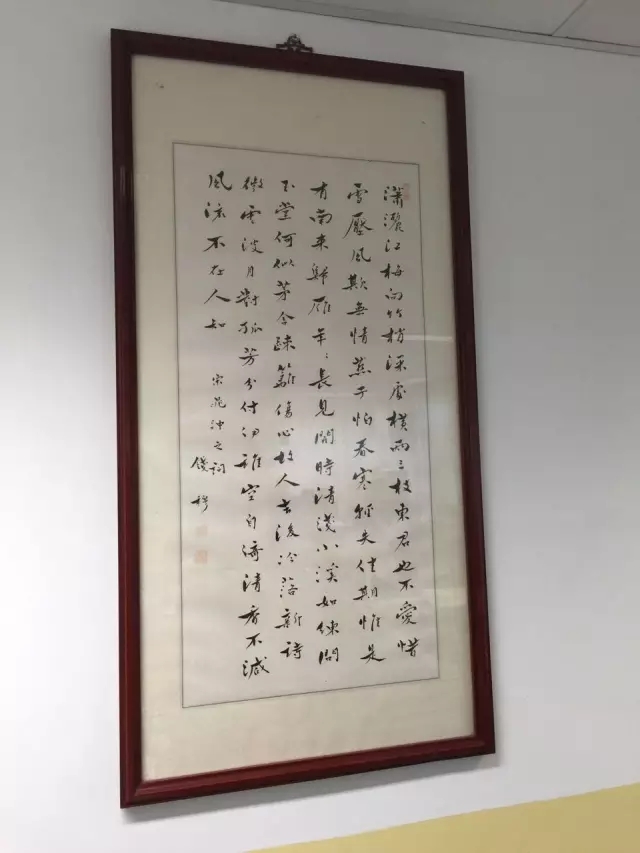 瀟灑江梅向竹梢深處橫兩三枝東君也不愛惜
雪壓風欺無情燕子怕春寒輕失佳期惟是
有南來歸雁年〻長見開時清淺小溪如練問
玉堂何似茅舍疎籬傷心故人去後冷落新詩
微雲淡月對孤芳分付伊誰空自倚清香不減
風流不在人知 宋晁沖之詞
錢穆